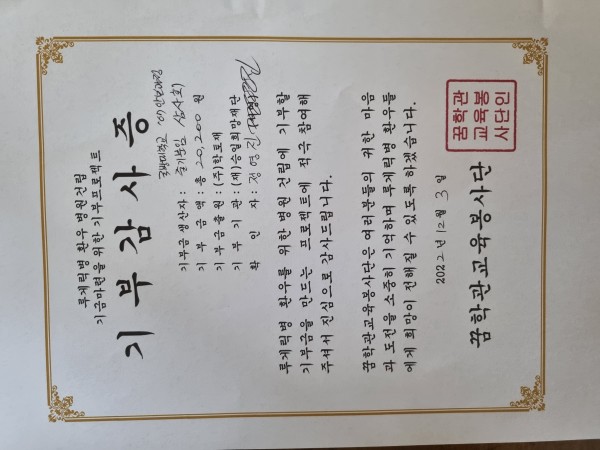 루게릭병 환우 병원건립
기금마련을 위한 기부프로젝트
기부감사증
기부금 생산자: 즐기분임 삼사회)
기 부 금 액: 총 20,200 원
기부금출원: (주)학토재
기 부 기 관: (재)승일희망재단
확 인 자: 정연진
루게릭병 환우를 위한 병원 건립에 기부할
기부금을 만드는 프로젝트에 적극 참여해
주셔서 진심으로 감사드립니다.
꿈학관교육봉사단은 여러분들의 귀한 마음
과 도전을 소중히 기억하며 루게릭병 환우들
에게 희망이 전해질 수 있도록 하겠습니다.
2022년 12월 3일
꿈학관교육봉사단
꿈학관
교육봉
사단인